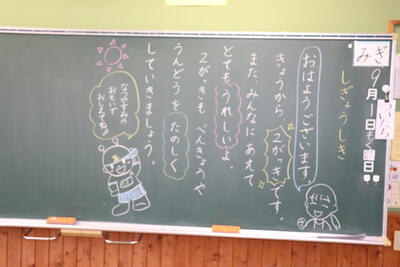 みぎ
9月一日もく曜日
ついたち
しぎょうしき
おはようございます。
きょうから、2がっきです。
また、みんなにあえて、
とてもうれしいよ。
2がっきも べんきょうや
うんどうを たのしく
していきましょう。
なつやすみの
おもいで
おしえてね。